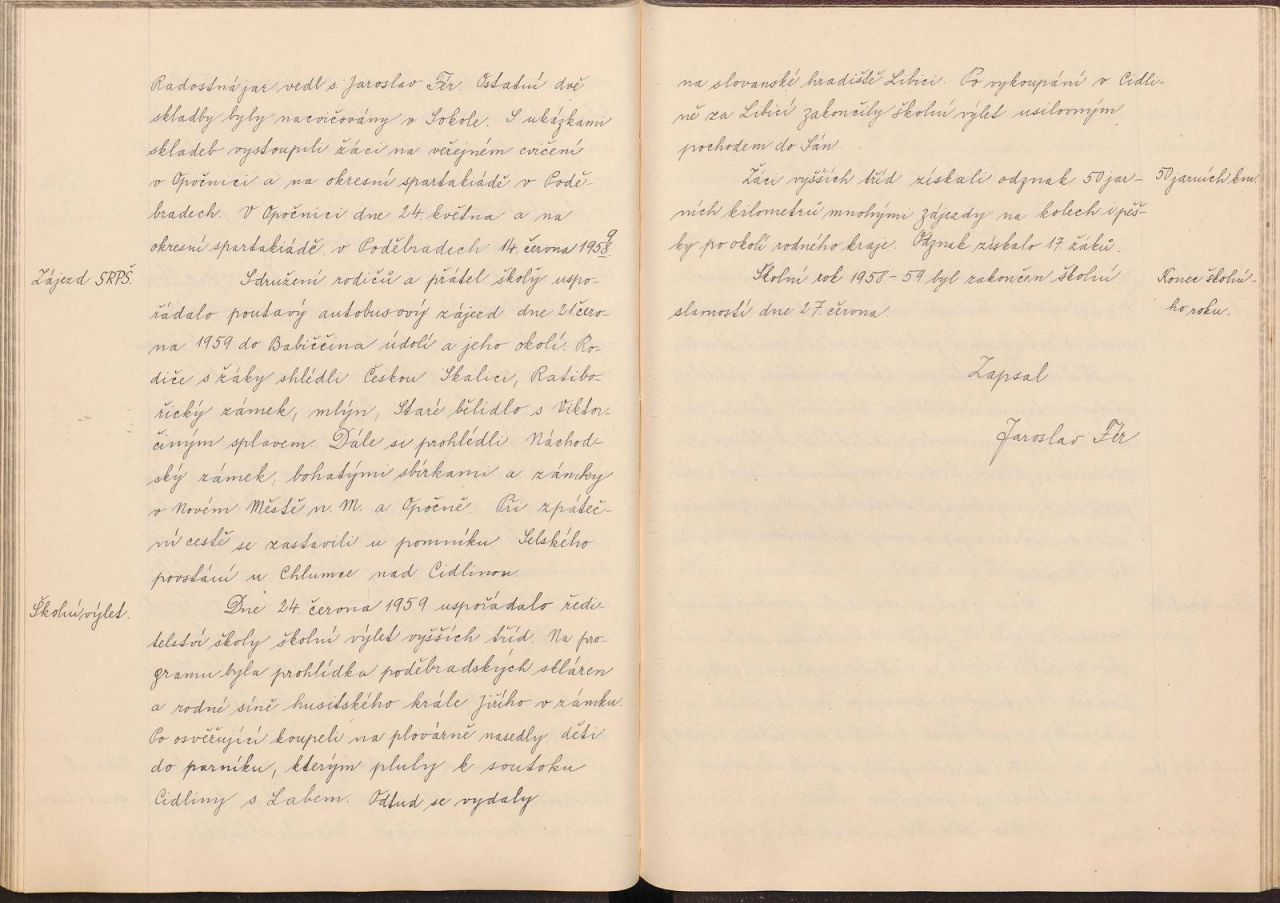 Radostná jar vedl s. Jaroslav Fér. Ostatní dvě
skladby byly nacvičovány v Sokole. S ukázkami
skladeb vystoupili žáci na veřejném cvičení
v Opočnici a na okresní spartakiádě v Podě-
bradech. V Opočnici dne 24. května a na
okresní spartakiádě v Poděbradech 14. června 1959.
Zájezd SRPŠ.
Sdružení rodičů a přátel školy uspo-
řádalo poutavý autobusový zájezd dne 21. červ-
na 1959 do Babiččina údolí a jeho okolí. Ro-
diče s žáky shlédli Českou Skalici, Ratibo-
řický zámek, mlýn, Staré bělidlo s Viktor-
činým splavem. Dále si prohlédli Náchod-
ský zámek, bohatými sbírkami a zámky
v Novém Městě n. M. a Opočně. Při zpáteč-
ní cestě se zastavili u pomníku Selského
povstání u Chlumce nad Cidlinou.
Školní výlet.
Dne 24 června 1959 uspořádalo ředi-
telství školy školní výlet vyšších tříd. Na pro-
gramu byla prohlídka poděbradských skláren
a rodné síně husitského krále Jiřího v zámku.
Po osvěžující koupeli na plovárně nasedly děti
do parníku, kterým pluly k soutoku
Cidliny s Labem. Odtud se vydaly
na slovanské hradiště Libici. Po vykoupání v Cidli-
ně za Libicí zakončily školní výlet usilovným
pochodem do Sán.
Žáci vyšších tříd získali odznak 50 jar-
ních kilometrů mnohými zájezdy na kolech i pěš-
ky po okolí rodného kraje. Odznak získalo 17. žáků.
50 jarních km.
Školní rok 1958-59 byl zakončen školní
slavností dne 27. června.
Konec školní-
ho roku.
Zapsal
Jaroslav Fér